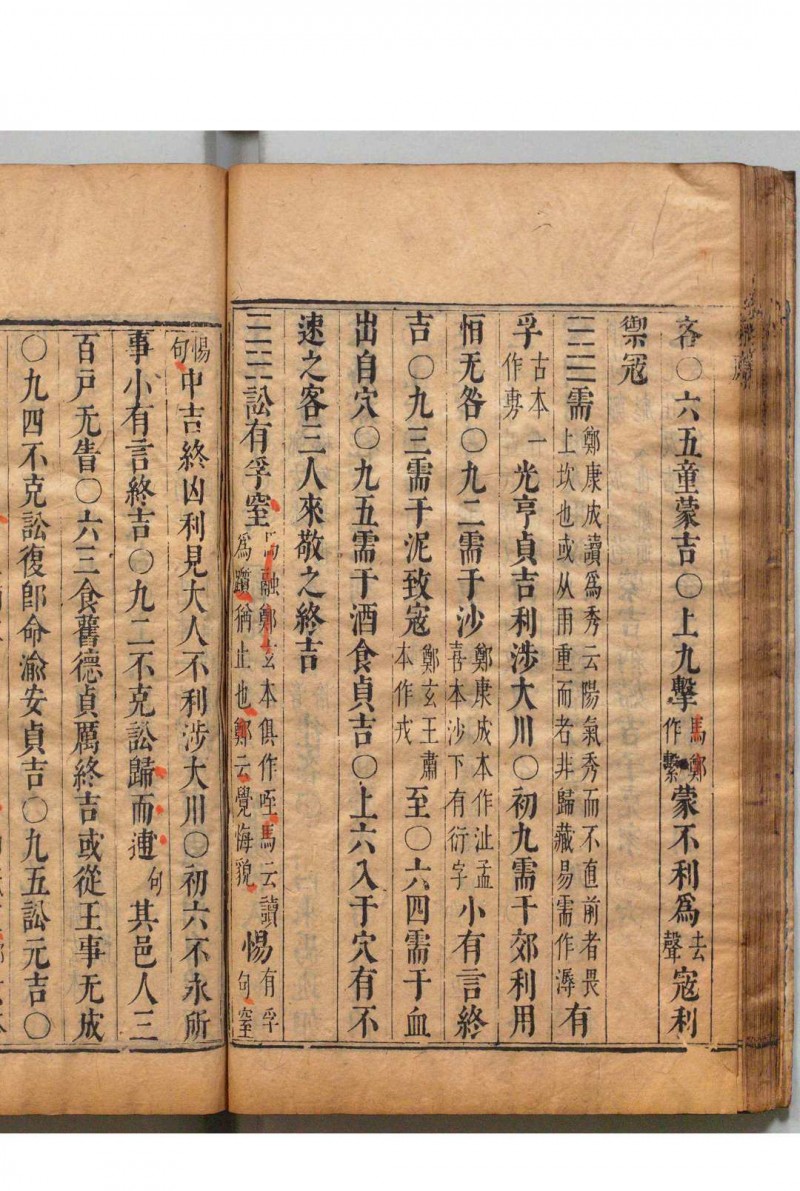 吝○六五童蒙吉○上九擊馬鄭作繫蒙不利爲去聲寇利
禦寇
䷄需鄭康成讀爲秀云陽氣秀而不直前者畏上坎也或从雨重而者非歸藏易需作溽有
孚古本作旉一光亨貞吉利涉大川○初九需于郊利用
恒无咎○九二需于沙鄭康成本作沚孟喜本沙下有衍字小有言終
吉○九三需于泥致寇鄭玄王肅本作戎至○六四需于血
出自穴○九五需于酒食貞吉○上六入于穴有不
速之客三人來敬之終吉
䷅訟有孚窒馬融鄭玄本俱作咥馬云讀爲躓猶止也鄭云覺悔貌惕有孚句窒
惕句中吉終凶利見大人不利涉大川○初六不永所
事小有言終吉○九二不克訟歸而逋句其邑人三
百戸无眚○六三食舊德貞厲終吉或從王事无成
○九四不克訟復即命渝安貞吉○九五訟元吉○